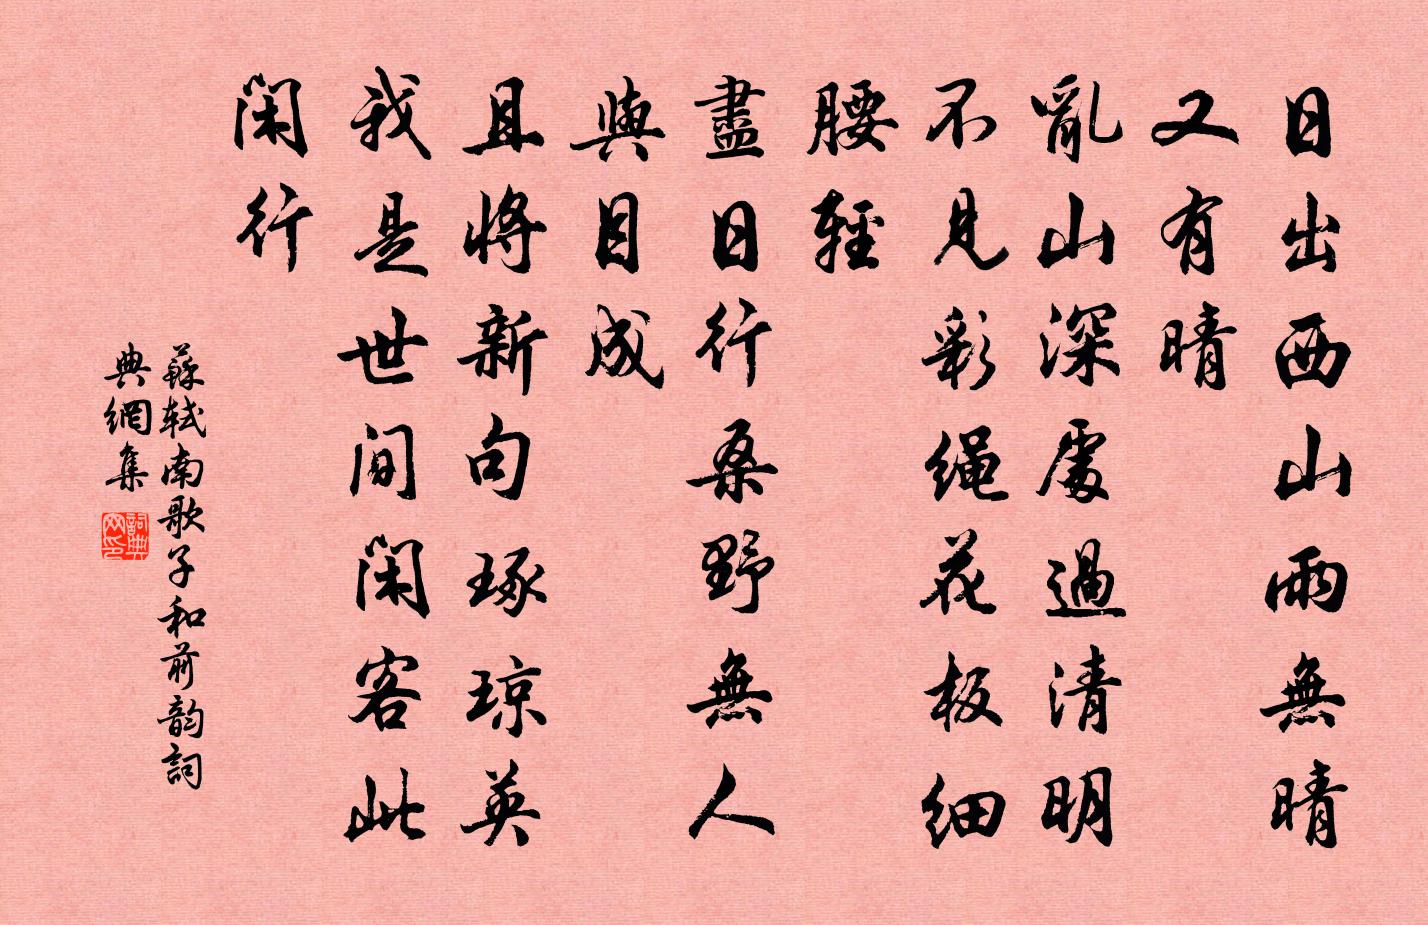 日出西山雨無晴
又有晴
亂山深處過清明
不見彩绳花板细
腰輕
盡日行桑野無人
與目成
且將新句琢琼英
我是世间闲客此
闲行
蘇轼南歌子和前韵詞
典網集
詞典
网印